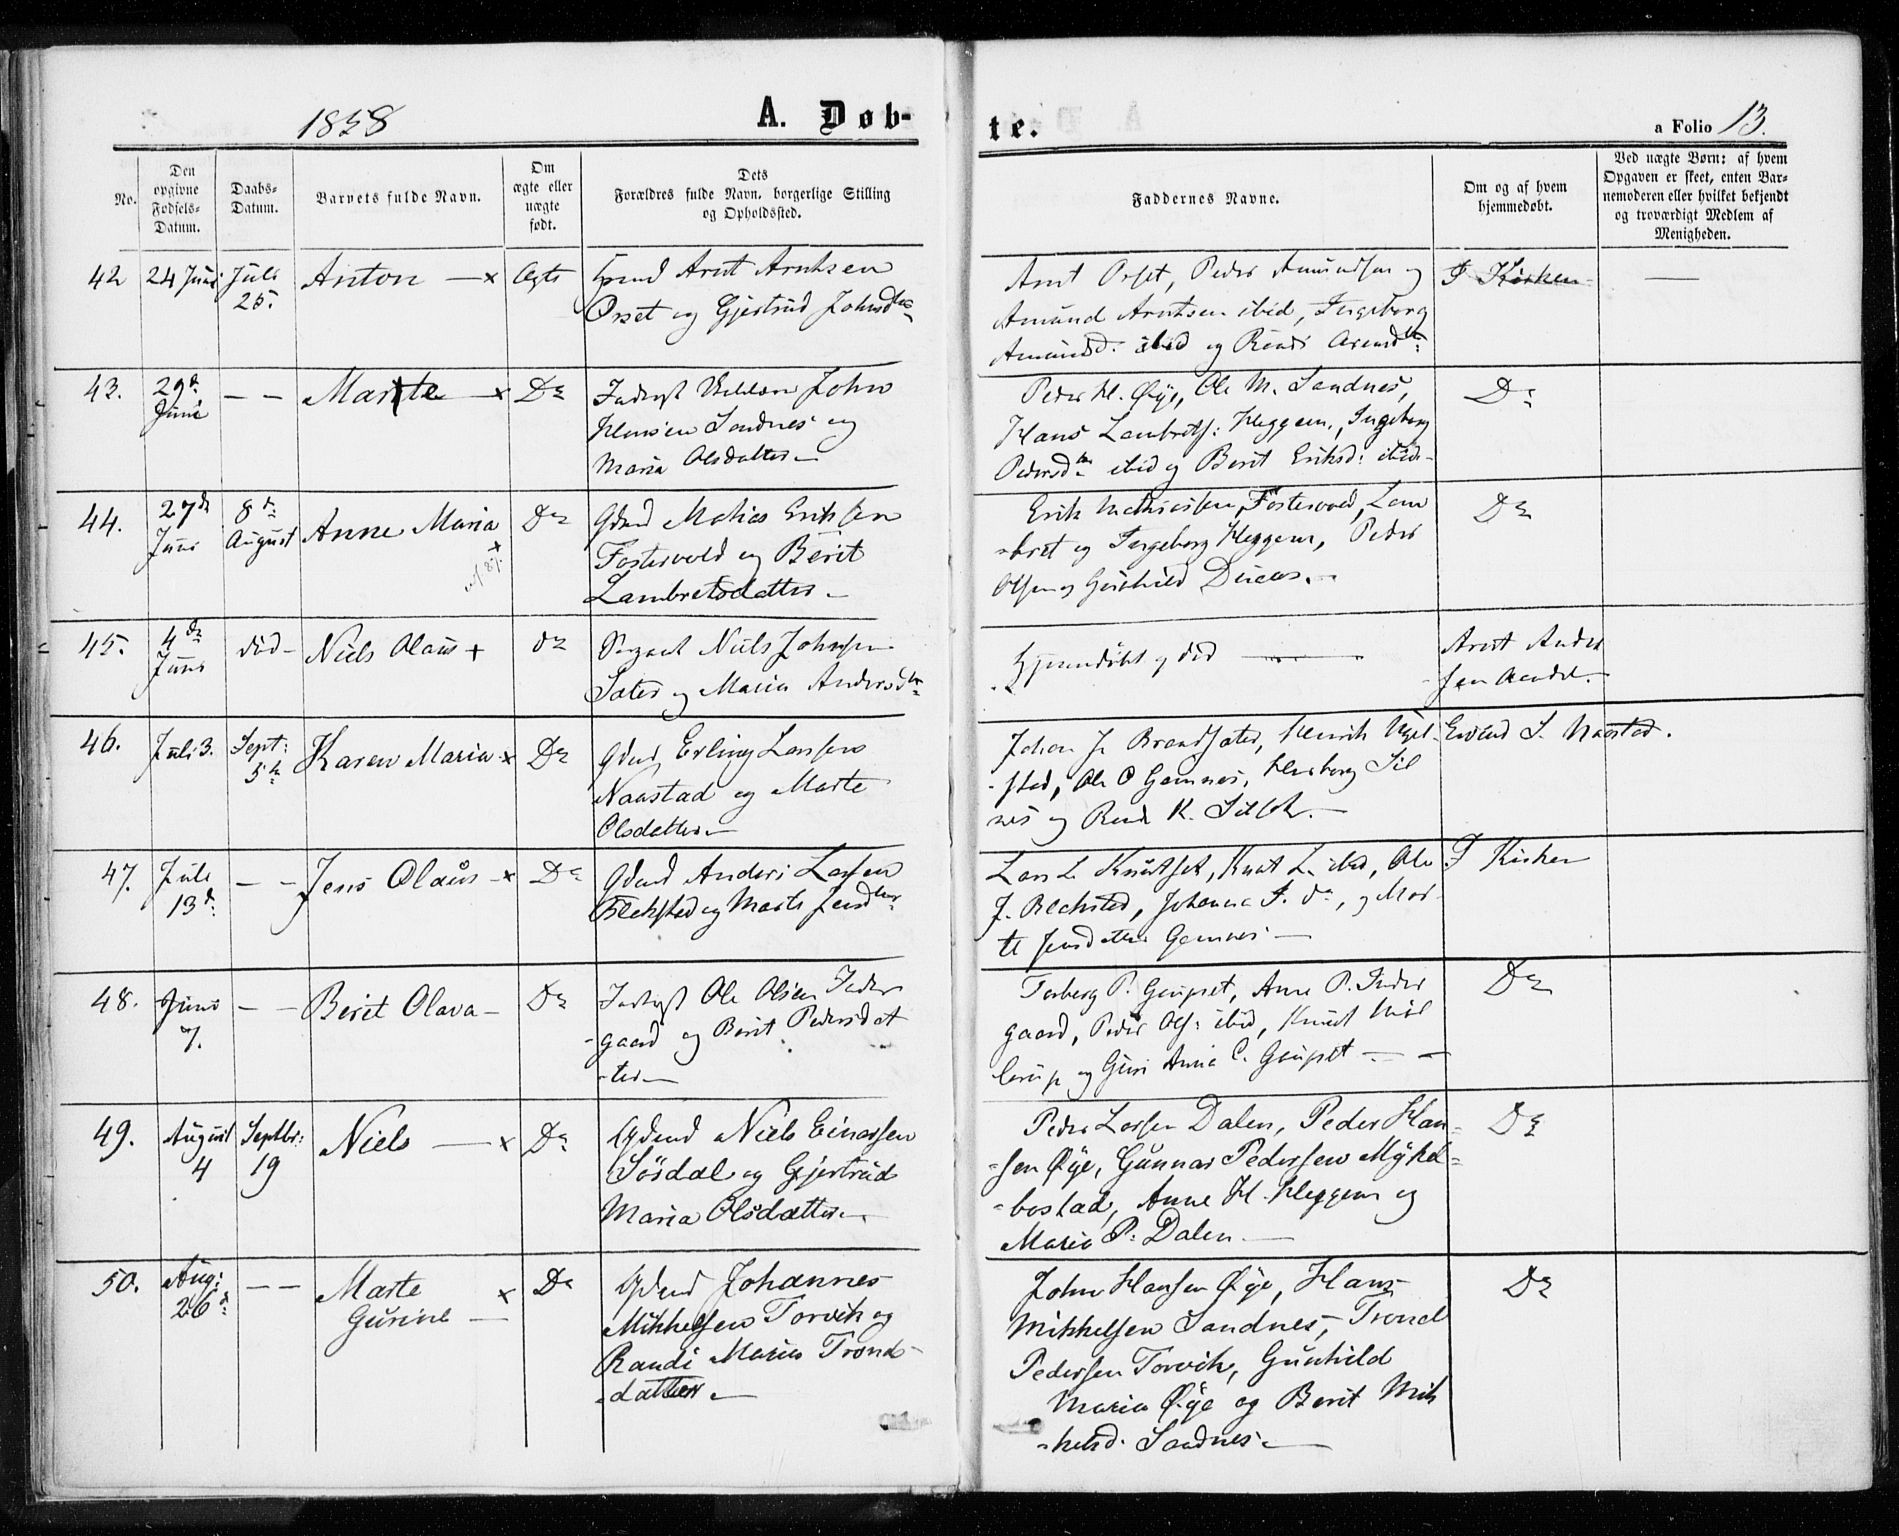 1858
A. Døb-
te.
a Folio 13.
No.
Den
opgivne
Fødsels-
Datum.
Daabs-
Datum.
Barnets fulde Navn.
Om
ægte eller
uægte
født.
Dets
Forældres fulde Navn, borgerlige Stilling
og Opholdssted.
Faddernes Navne.
Om og af hvem
hjemmedøbt.
Ved uægte Børn: af hvem
Opgaven er skeet, enten Bar-
nemoderen eller hvilket bekjendt
og troværdigt Medlem af
Menigheden.
42 24 Juni Juli 25. Anton — x Ægte
Arnt Arntsen
Orset og Gjertrud Johnsdtr
Arnt Orset, Peder Amundsen og
Amund Arntsen ibid, Ingeborg
Amundsd. ibid og Randi Arensdtr
I Kirken —
43. 29d Juni — — Marte — x Do
John
Hansen Sandnes og
Maria Olsdatter —
Peder H. Øye, Ole M. Sandnes,
Hans Lambrets: Heggem, Ingeborg
Pedersdtr ibid og Berit Eriksd: ibid-
Do
44. 27de Juni 8de August Anne Maria x Do
Gdmd Matias Eriksen
Fostervold og Berit
Lambretsdatter —
Erik Mathiasen Fostervold, Lam
-bret og Ingeborg Heggem, Peder
Olsen og Gunhild
Do
45. 4de Juni død- Niels Olaus + do
Niels Johnsen
Sæter og Maria Andersdtr
Hjemmdøbt og død —
Arnt Anders
-sen
46. Juli 3. Sept: 5te Karen Maria x Do
Gdmd Erling Larssen
Naastad og Marte
Olsdatter —
Johan J. Brandsæter, Henrik Ugel
-stad, Ole O Gamnes, Sil
nes og K. —
Eivend S. Naastad.
47. Juli 13d. — — Jens Olaus — x Do
Gdmd Anders Larsen
Blekstad og Marte Jensdtr
Lars L Knutset, Knut L. ibid, Ole
J. Blekstad, Johanna J. do, og Mar
te Jensdatter Gamnes —
I Kirken
48. Juni 7. — — Berit Olava — Do
Ole Olsen Inder
-gaard og Berit Pedersdat
-ter —
Torberg P. Gaupset, Anne P. Inder
gaard, Peder Ols: ibid, Knud Møl
lerup og Guri Anna C. Gaupset — —
Do
49. August 4 Septbr: 19 Niels — x Do
Gdmd Niels Einarsen
Søsdal og Gjertrud
Maria Olsdatter —
Peder Larsen Dalen, Peder Han-
-sen Øye, Gunnar Pedersen Mykel-
-bostad, Anne H. Heggem og
Maria P: Dalen —
Do
50. Aug: 26d — — Marte
Gurine — x Do
Gdmd Johannes
Mikkelsen Torvik og
Randi Maria Trond-
-datter —
John Hansen Øye, Hans
Mikkelsen Sandnes, Trond
Pedersen Torvik, Gunhild
Maria Øye og Berit Mik
-kelsd. Sandnes —
Do